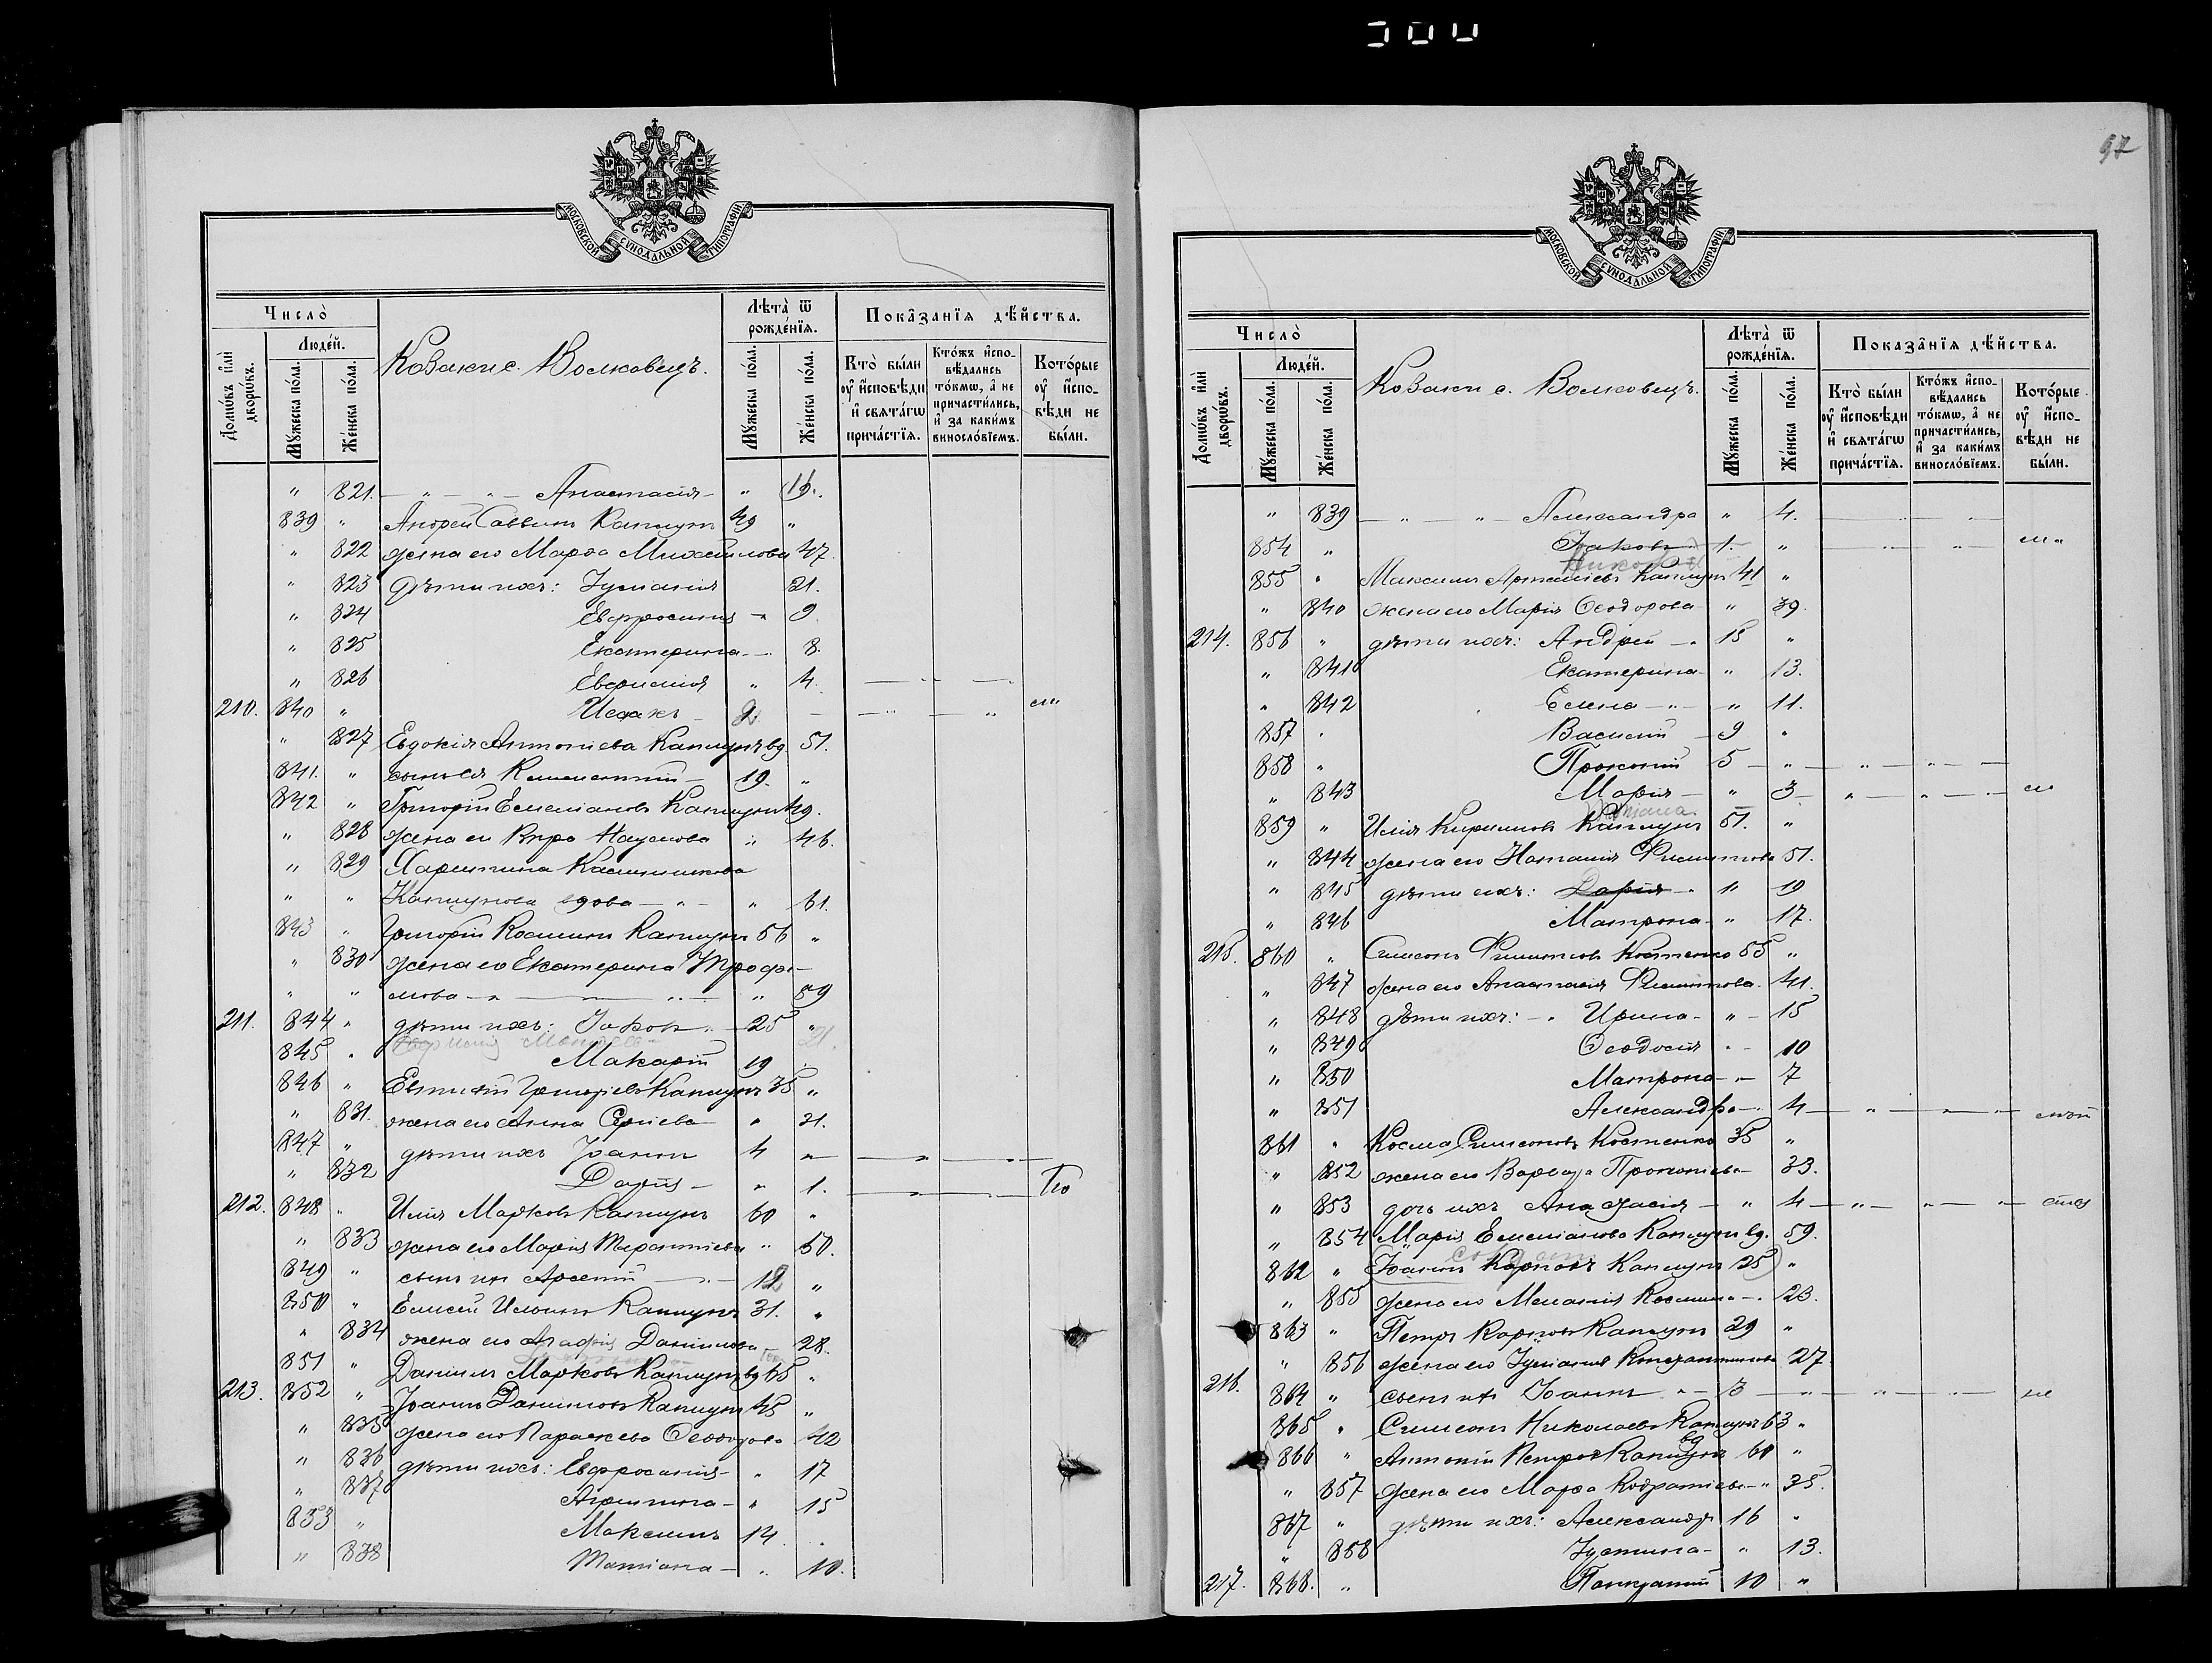 97
МОСКОВСКОЙ СѴНОДАЛЬНОЙ ТИПОГРАФІИ
Число̀
Домѡ́въ и҆лѝ дворѡ́въ.
Люде́й.
Мꙋ́жеска по́ла.
Же́нска по́ла.
Козаки с. Волковецъ.
Лѣ́та ѿ рожде́нїѧ.
Мꙋ́жеска по́ла.
Же́нска по́ла.
Пока̑занїѧ дѣ́йства.
Кто̀ бы́ли оу҆ и҆сповѣди и҆ свѧта́гѡ прича́стїѧ.
Кто́жъ и҆спо-вѣдались то́кмѡ, а҆ не причасти́лись, и҆ за каки́мъ винословїемъ.
Кото́рые оу҆ и҆спо-вѣди не бы́ли.
" 821. — " — " — Анастасія — " 19.
839 " Андрей Саввинъ Капшунъ 49 "
" 822 жена его Марѳа Михайлова 47.
" 823 дѣти ихъ: Іуліанія 21.
" 824 Евфросинія — " 9.
" 825 Екатерина — 8.
" 826 Евфимія " 4.
210. 840 " Исаакъ 2
" 827 Евдокія Антоніева Капшунъ вд. 51.
841. " сынъ ея Климентій — 19. "
842 " Григорій Емеліановъ Капшунъ 49.
" 828 жена его Наумова " 46.
" 829 Харитина
" " Капшунова вдова — " — " 61.
843 " Григорій Косминъ Капшунъ 56 "
" 830 жена его Екатерина Трофи-
" " мова — " — " 59
211. 844 " дѣти ихъ: Іаковъ — 25 "
21.
845 " Макарій 19
846 " Евтихій Григоріевъ Капшунъ 35 "
" 831. жена его Анна Сергіева " 31.
847 " дѣти ихъ Іоаннъ 4 "
" 832 Дарія — " 1.
212. 848 " Илія Марковъ Капшунъ 60 "
" 833 жена его Марія Терентіева " 50.
849 " сынъ ихъ Арсеній 12 "
850 " Елисей Ильинъ Капшунъ 31. "
" 834 жена его Агафія Даніилова — 28.
851 " Даніилъ Марковъ Капшунъ вд 65 "
213. 852 " Іоаннъ Даніиловъ Капшунъ 45 "
" 835 жена его Параскева Ѳеодорова 42
" 836 дѣти ихъ: Евфросинія — " 17
" 837 Агрипина — " 15
853 " Максимъ 14.
" 838 Татіана — " 10.
МОСКОВСКОЙ СѴНОДАЛЬНОЙ ТИПОГРАФІИ
Число̀
Домѡ́въ и҆лѝ дворѡ́въ.
Люде́й.
Мꙋ́жеска по́ла.
Же́нска по́ла.
Козаки с. Волковецъ.
Лѣ́та ѿ рожде́нїѧ.
Мꙋ́жеска по́ла.
Же́нска по́ла.
Пока̑занїѧ дѣ́йства.
Кто̀ бы́ли оу҆ и҆сповѣди и҆ свѧта́гѡ прича́стїѧ.
Кто́жъ и҆спо-вѣдались то́кмѡ, а҆ не причасти́лись, и҆ за каки́мъ винословїемъ.
Кото́рые оу҆ и҆спо-вѣди не бы́ли.
" 839 — " — " — Александра " 4.
854 " Іаковъ 1. "
Николай
855 " Максимъ Капшунъ 41 "
" 840 жена его Марія Ѳеодорова " 39.
214. 856 " дѣти ихъ: Андрей — " 15 "
" 841 Екатерина — " 13.
" 842 Елена — " — " 11.
857 " Василій — 9 "
858 " Прокопій 5 — "
" 843 Марія — " 3
859 " Илія Кириловъ Капшунъ 51. "
" 844 жена его Наталія Филиппова 51.
" 845 дѣти ихъ: Дарія — " 19
" 846 Матрона — " 17.
215. 860 " Симеонъ Филиповъ Костенко 55 "
" 847 жена его Анастасія Филиппова. 41.
" 848 дѣти ихъ: — " Ирина — " — 15
" 849 Ѳеодосія " 10
" 850 Матрона — " 7
" 851 Александра — 4
861 " Косма Симеоновъ Костенко 35 "
" 852 жена его Варвара Прокопіева — 33.
" 853 дочь ихъ Анастасія — " 4
" 854 Марія Емеліанова Капшунъ вд. 59.
солдат
862 " Іоаннъ Карповъ Капшунъ 25) "
" 855 жена его Меланія Космина — 23.
863 " Петръ Карповъ Капшунъ 29 "
" 856 жена его Іуліанія Константинова 27
216. 864 " сынъ ихъ Іоаннъ " 3
865 " Симеонъ Николаевъ Капшунъ 63 "
вд
866 " Антоній Петровъ Капшунъ 60 "
" 857 жена его Марѳа Кодратіева — " 35.
867 " дѣти ихъ: Александръ 16 "
" 858 Іустина — " 13.
217. 868. " Панкратій 10 "